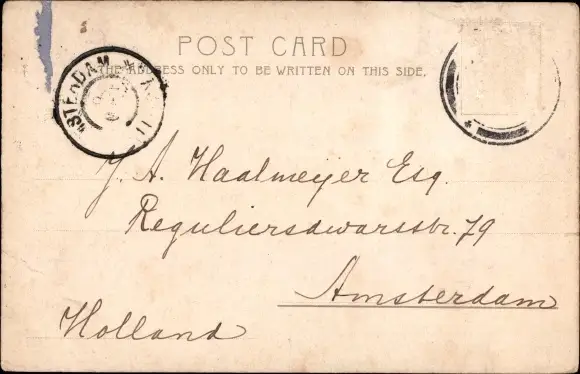 POST CARD
THE ADDRESS ONLY TO BE WRITTEN ON THIS SIDE.
AMSTERDAM
J. A. Haalmeyer Esq.
Reguliersdwarsstr. 79
Amsterdam
Holland